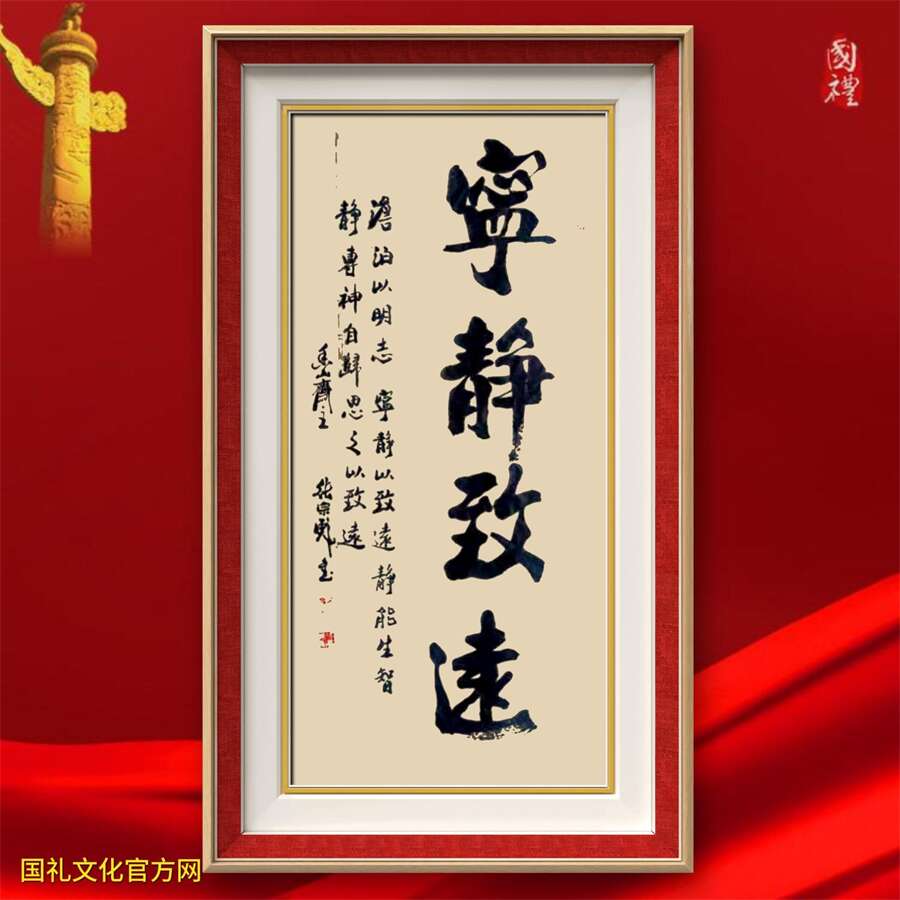 國禮
寧靜致遠
澹泊以明志 寧靜以致遠 靜能生智
靜專神自歸 思之以致遠
国礼文化官方网